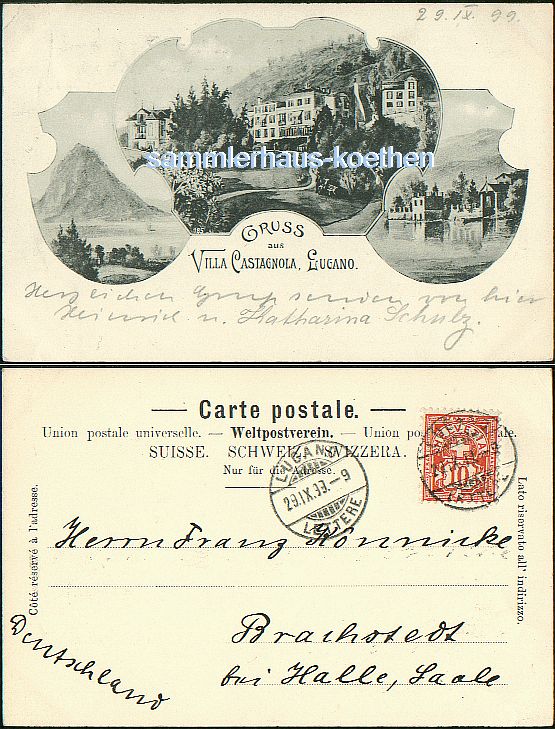 29.IX.99.
sammlerhaus-koethen
GRUSS
aus
VILLA CASTAGNOLA, LUGANO.
Herzlichen Gruss senden von hier
Heinrich u. Katharina Schulz.
— Carte postale. —
Union postale universelle. — Weltpostverein. — Union postale
SUISSE. SCHWEIZ. SVIZZERA.
Nur für die Adresse.
HELVETIA
10
LUGANO
29.IX.99.-9
LETTERE
Côté réservé à l'adresse.
Lato riservato all' indirizzo.
Herrn Franz Könnicke
Brachstedt
bei Halle, Saale
Deutschland